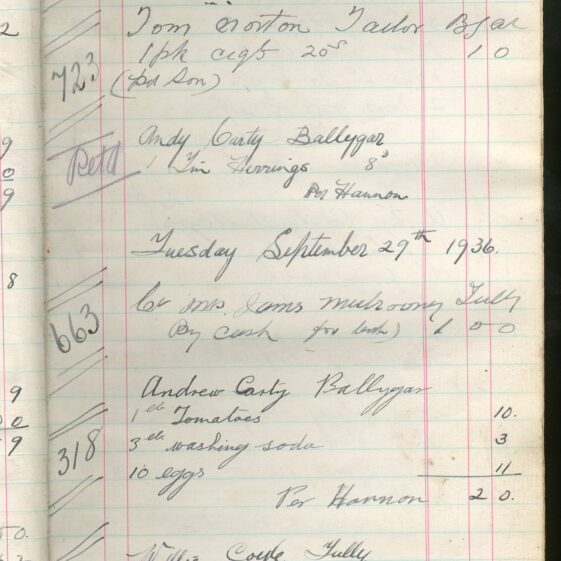 Tom Norton Tailor Bgar
1 pk cigs 20s 1 0
723
(per Son)
Andy Carty Ballygar
Retd
1 Tin Herrings 8"
Per Hannon
Tuesday September 29th 1936.
Cr Mrs. Jams Mulrooney Tully
663
(By cash for ) 1 0 0
Andrew Carty Ballygar
1 lb Tomatoes 10.
3 lb. washing soda 3
318
10 eggs 11
Per Hannon 2 0.
Coyle Tully